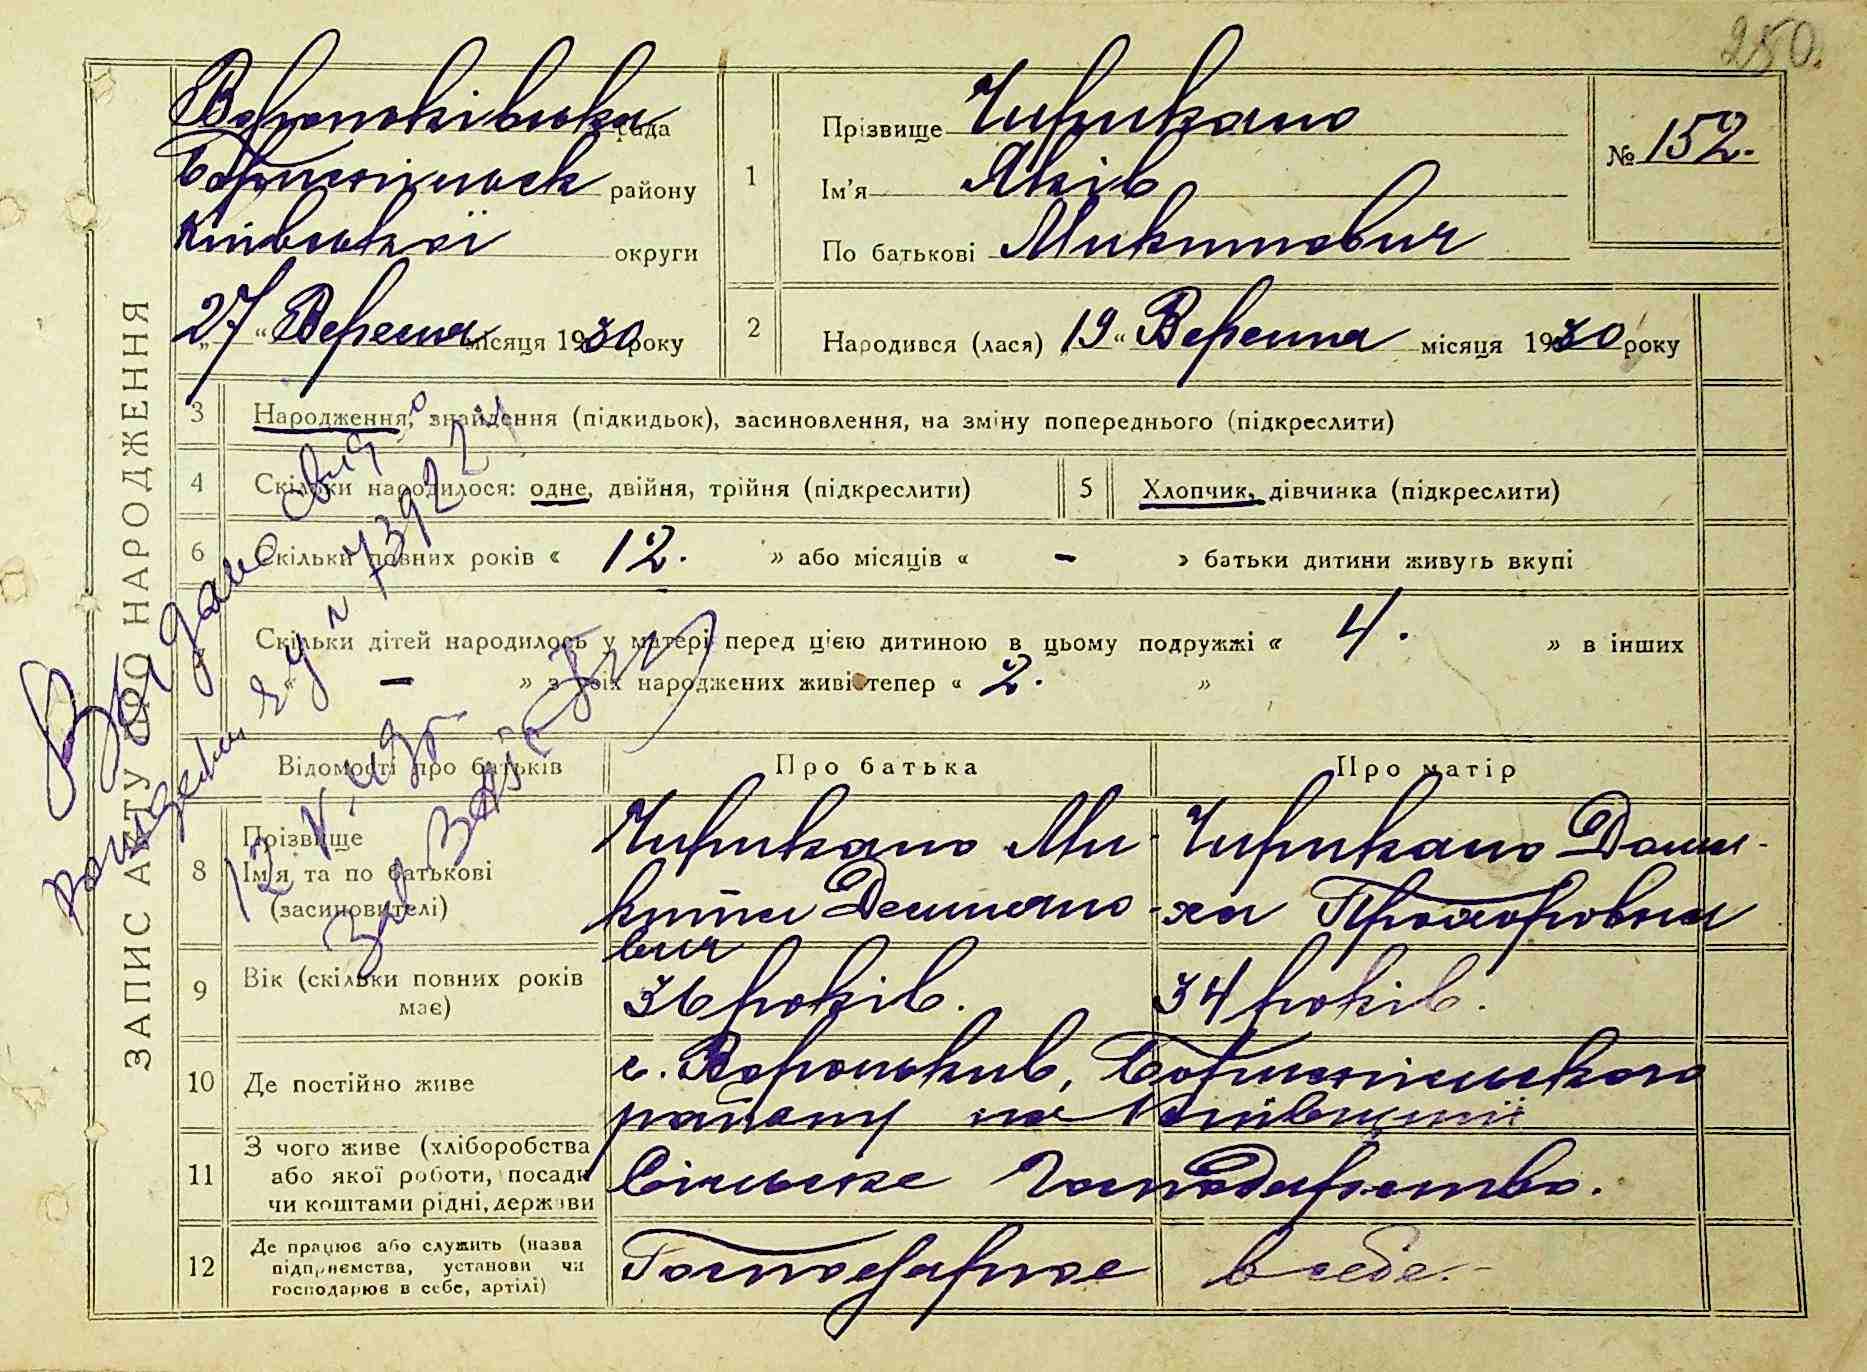 250.
ЗАПИС АКТУ ПРО НАРОДЖЕННЯ
Вороньківська рада
Бориспільск району
Київської округи
„27“ Вересня місяця 1930 року
1
Прізвище Чирикало
Ім'я Яків
По батькові Микитович
№ 152.
2
Народився (лася) „19“ Вересня місяця 1930 року
3 Народження, знайдення (підкидьок), засиновлення, на зміну попереднього (підкреслити)
4 Скільки народилося: одне, двійня, трійня (підкреслити)
5 Хлопчик, дівчинка (підкреслити)
6 Скільки повних років « 12. » або місяців « - » батьки дитини живуть вкупі
Скільки дітей народилось у матері перед цією дитиною в цьому подружжі « 4. » в інших
« - » з усіх народжених живі тепер « 2. »
Відомості про батьків
Про батька
Про матір
8 Прізвище
Ім'я та по батькові
(засиновителі)
Чирикало Ми-
кита Демияно
вич
Чирикало Доми-
-ха Прохоровна
9 Вік (скільки повних років
має)
36 років.
34 років.
10 Де постійно живе
с. Вороньків, Бориспільского
району на Київщині
11 З чого живе (хліборобства
або якої роботи, посади
чи коштами рідні, держави
Сільське Господарство.
12 Де працює або служить (назва
підприємства, установи чи
господарює в себе, артілі)
Господарює в себе.
Видано свид-о
№ 739224
12
Зав ЗАГС